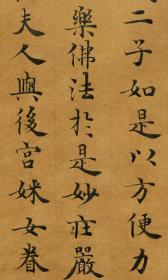 二子如是以方便力
樂佛法於是妙莊嚴
夫人與後宮婇女眷